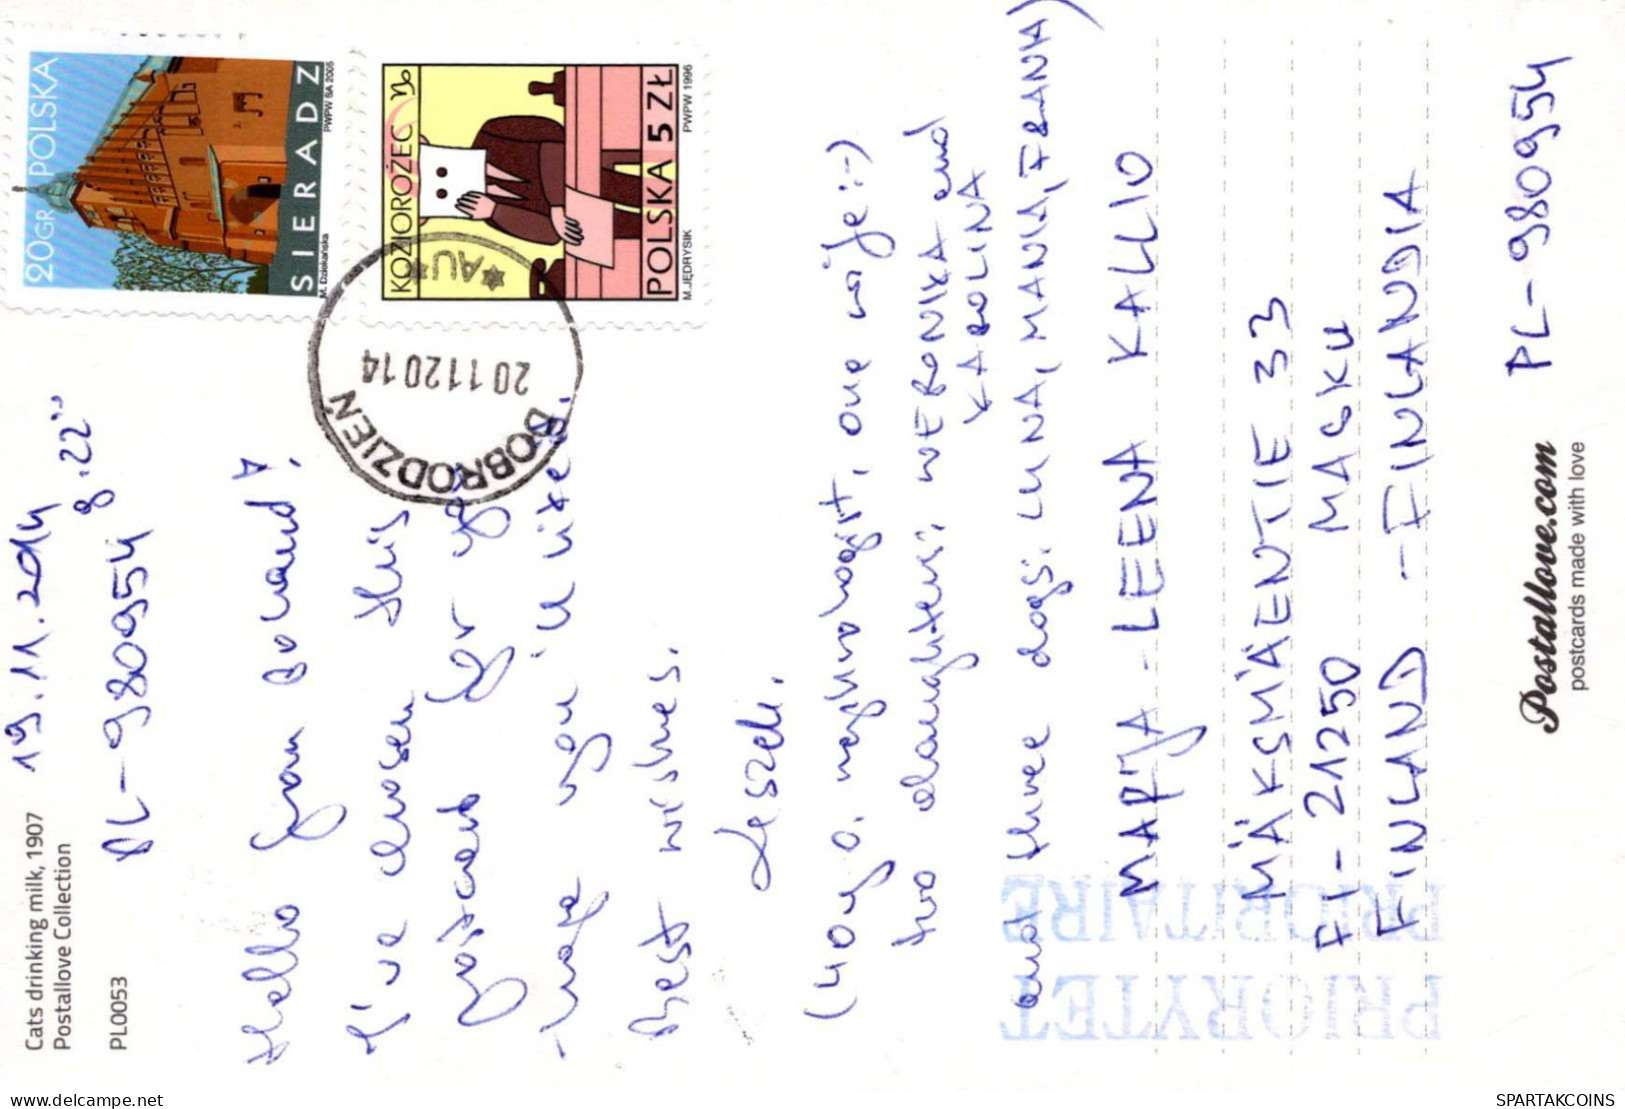 Cats drinking milk, 1907
Postallove Collection
PL0053
19.11.2014
8.22"
PL-980954
Hello from Poland!
I've chosen this
postcard for you
hope you 'll like it.
Best wishes.
Leszek.
(40 y.o. neurologist, one wife :-)
two daughters: WERONIKA and
KAROLINA
and three dogs: LUNA, MANIA, FRANK)
20GR POLSKA
SIERADZ
M. Dziekańska
PWPW SA 2005
KOZIOROŻEC
POLSKA 5 ZŁ
M.JĘDRYSIK
PWPW 1996
DOBRODZIEŃ
20112014
AU
MARJA-LEENA KALLIO
MÄKSMÄENTIE 33
FI-21250 MASKU
FINLAND - FINLANDIA
PRIORITAIRE
PRIORYTET
PL-980954
Postallove.com
postcards made with love
SPARTAKCOINS
delcampe.net